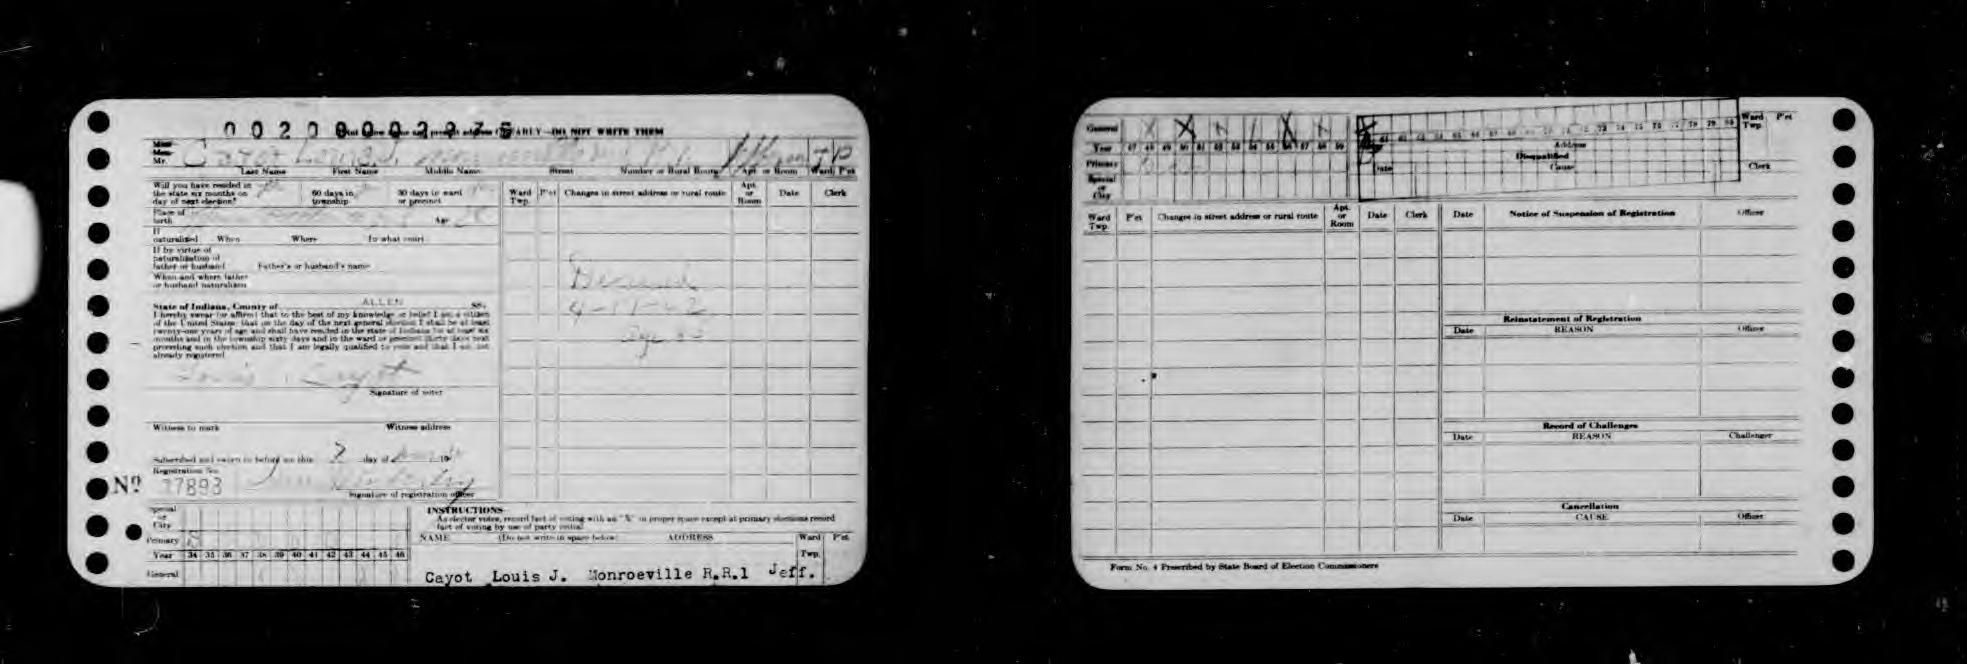 0020000297
name and present address CLEARLY—DO NOT WRITE THEM
Miss
Mrs.
Mr. Cayot Louis J.
Last Name First Name Middle Name Street Number or Rural Route Apt. or Room Ward P'ct
Will you have resided in
the state six months on
day of next election?
60 days in
township
30 days in ward
or precinct
Place of
birth
Age
If
naturalized When Where In what court
If by virtue of
naturalization of
father or husband Father's or husband's name
When and where father
or husband naturalized
State of Indiana, County of ALLEN SS:
I hereby swear (or affirm) that to the best of my knowledge or belief I am a citizen
of the United States; that on the day of the next general election I shall be at least
twenty-one years of age and shall have resided in the state of Indiana for at least six
months and in the township sixty days and in the ward or precinct thirty days next
preceding such election and that I am legally qualified to vote and that I am not
already registered
Louis Cayot
Signature of voter
Witness to mark Witness address
Subscribed and sworn to before me this 7 day of 19
Registration No.
Nº 77893
Signature of registration officer
Ward
Twp. P'ct Changes in street address or rural route Apt.
or
Room Date Clerk
4-11-62
Age
Special
or
City
Primary
Year 34 35 36 37 38 39 40 41 42 43 44 45 46
General
INSTRUCTIONS
As elector votes, record fact of voting with an "X" in proper space except at primary elections record
fact of voting by use of party initial
NAME (Do not write in space below) ADDRESS Ward P'ct
Twp.
Cayot Louis J. Monroeville R.R.1 Jeff.
General X X X X X X
Year 47 48 49 50 51 52 53 54 55 56 57 58 59
Primary
Special
or
City
61 62 63 64 65 66 67 68 69 70 71 72 73 74 75 76 77 78 79 80
Address
Disqualified
Date Cause
Ward
Twp. P'ct
Clerk
Ward
Twp. P'ct Changes in street address or rural route Apt.
or
Room Date Clerk
Date Notice of Suspension of Registration Officer
Reinstatement of Registration
Date REASON Officer
Record of Challenges
Date REASON Challenger
Cancellation
Date CAUSE Officer
Form No. 4 Prescribed by State Board of Election Commissioners